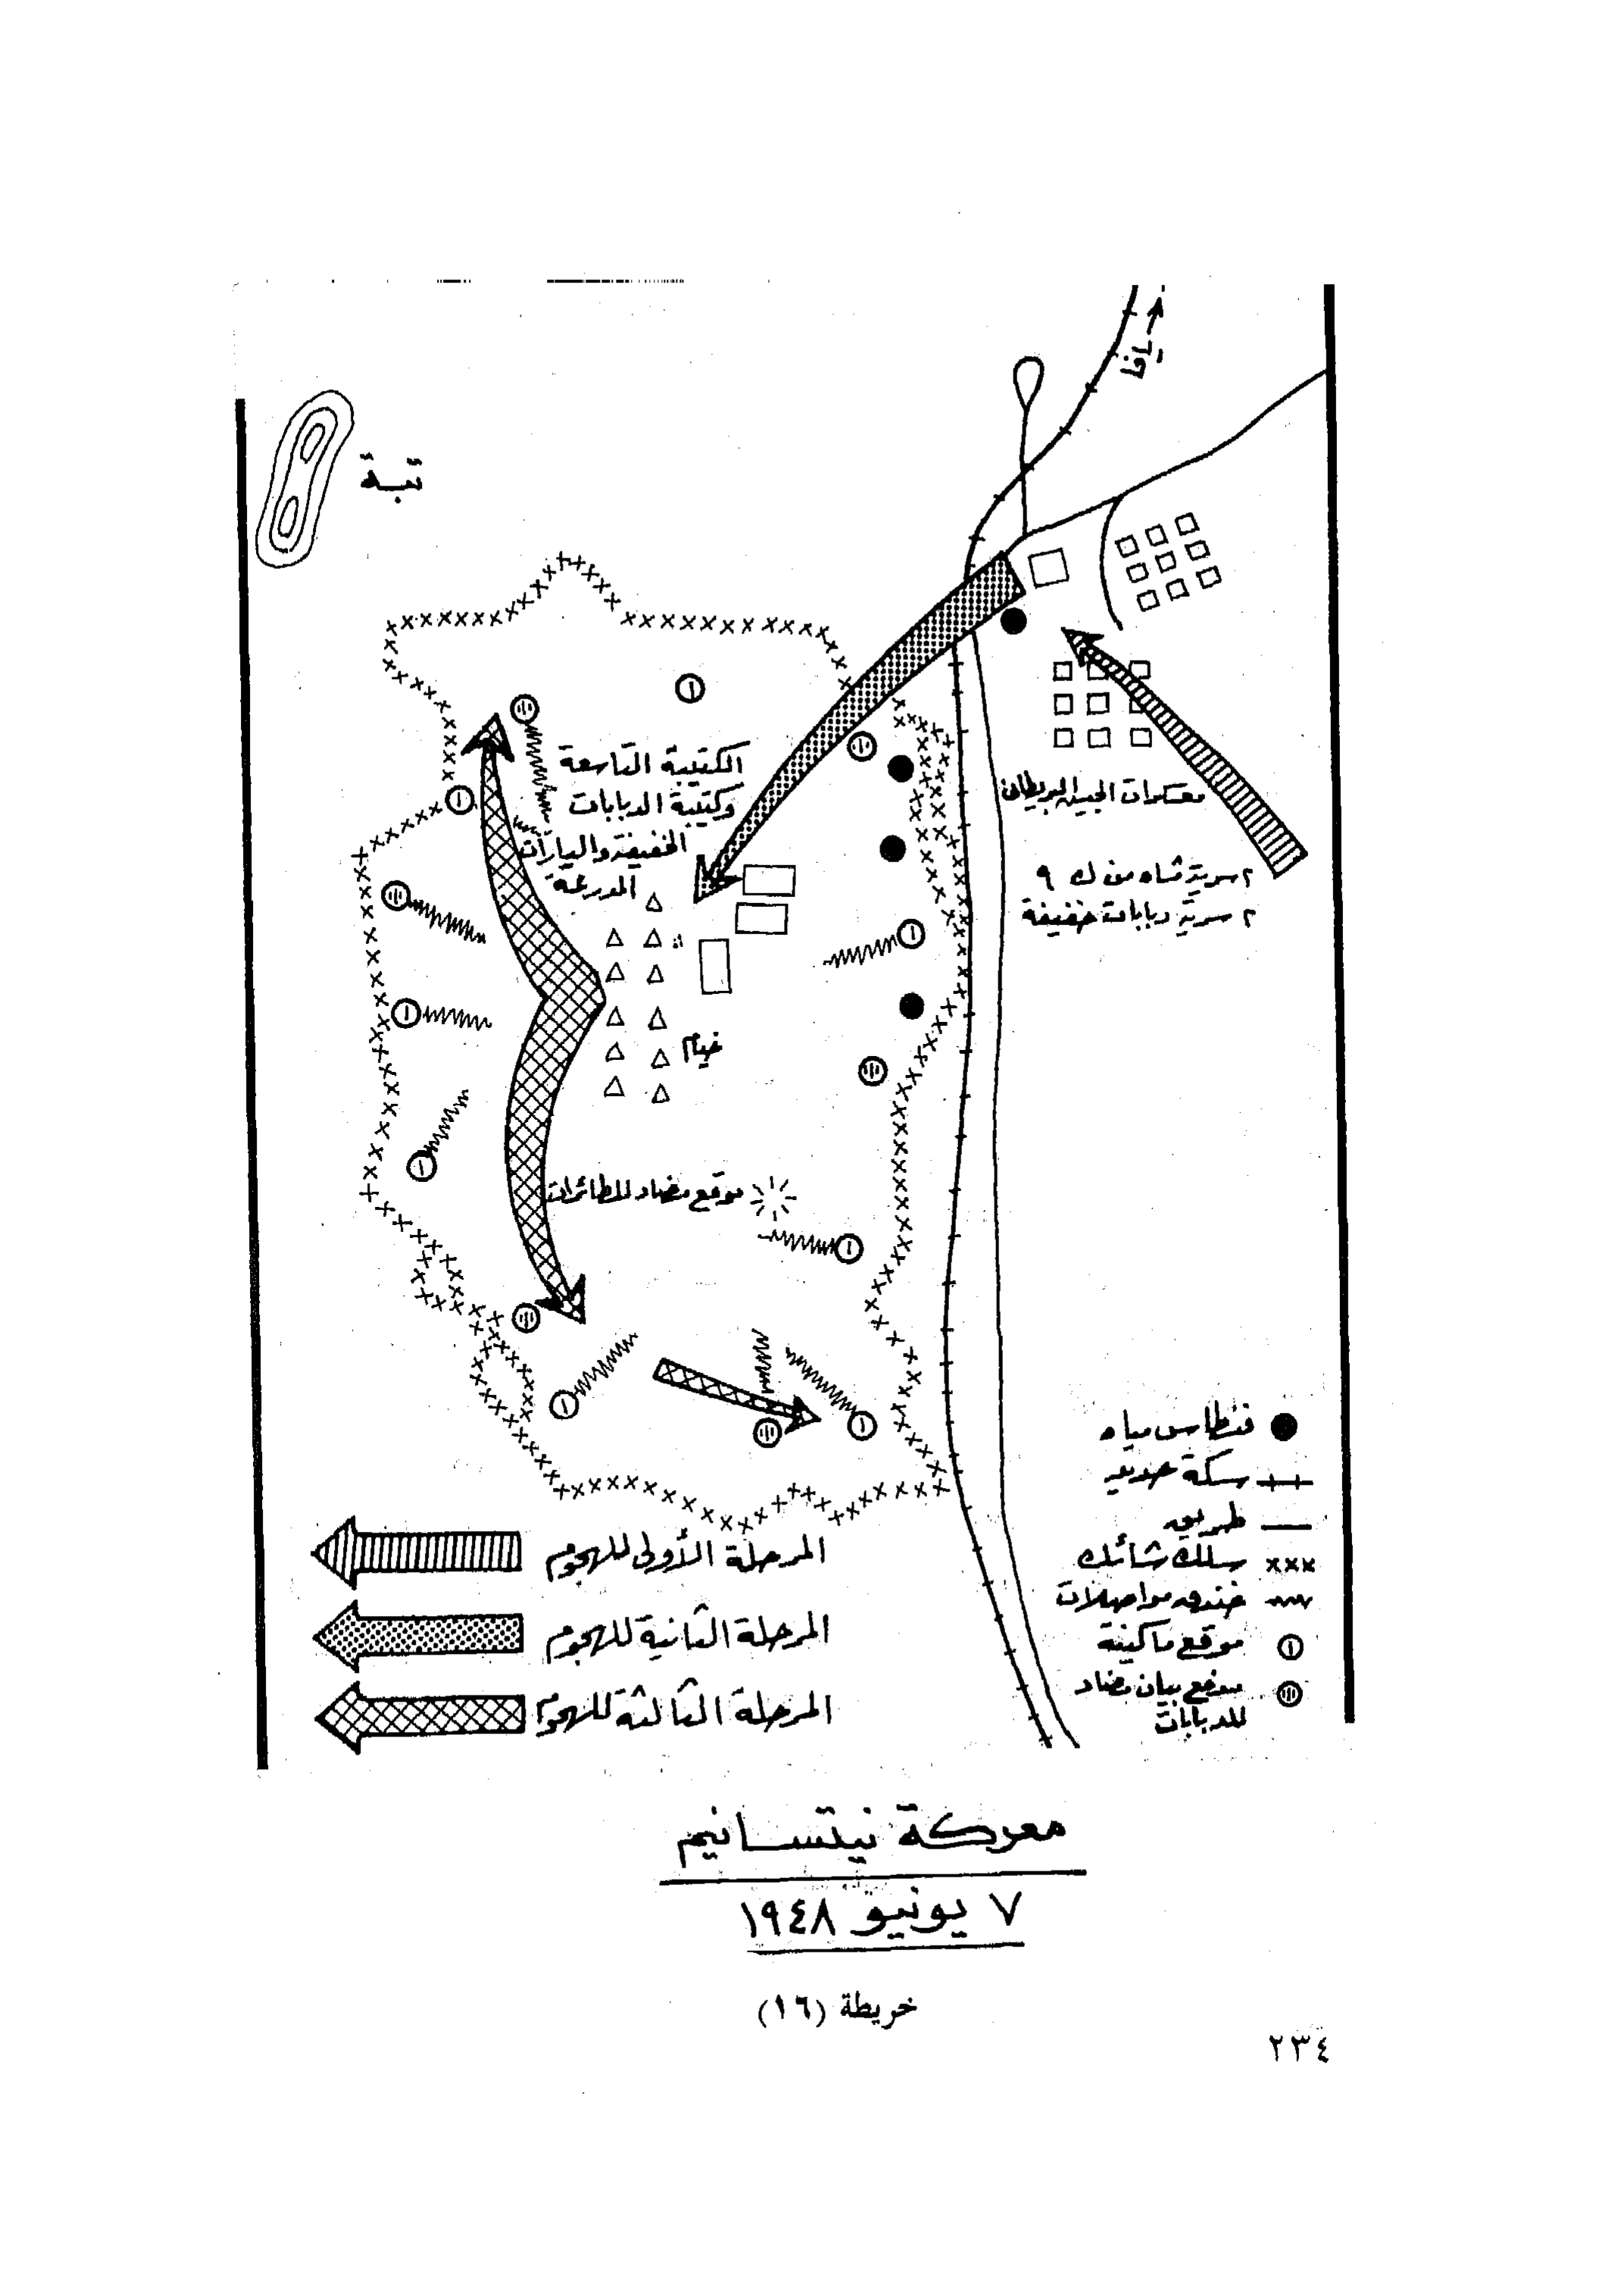 يافا
تبة
الكتيبة التاسعة
وكتيبة الدبابات
الخفيفة والسيارات
المدرعة
معسكرات الجيش البريطاني
٢ سرية مشاه من ك ٩
٢ سرية دبابات خفيفة
خيام
موقع مضاد للطائرات
فنطاس مياه
سكة حديد
طريق
سلك شائك
خندق مواصلات
موقع ماكينة
مدفع بيات مضاد
للدبابات
المرحلة الأولى للهجوم
المرحلة الثانية للهجوم
المرحلة الثالثة للهجوم
معركة نيتسانيم
٧ يونيو ١٩٤٨
خريطة (١٦)
٢٣٤